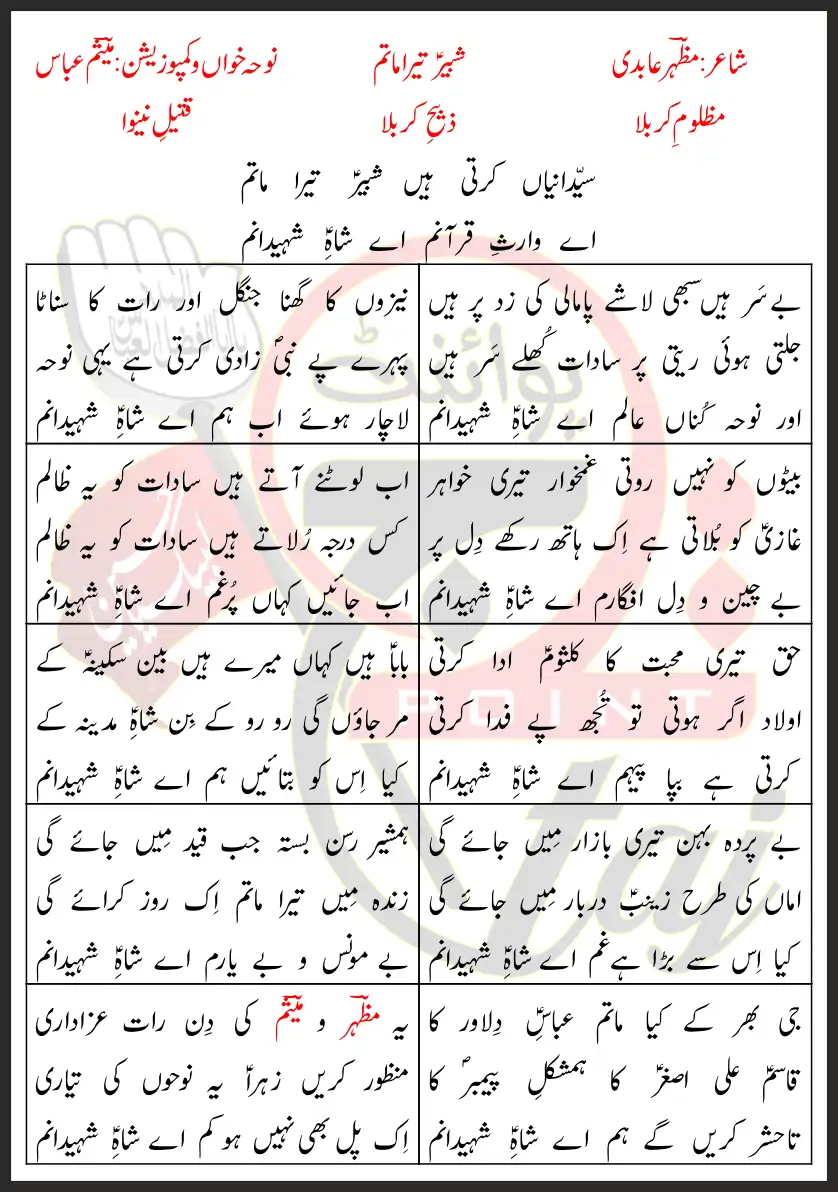 شاعر: مظہرؔ عابدی
شبیرؑ تیرا ماتم
نوحہ خواں و کمپوزیشن: میثمؔ عباس
مظلومِ کربلا
ذبیحِ کربلا
قتیلِ نینوا
سیّدانیاں کرتی ہیں شبیرؑ تیرا ماتم
اے وارثِ قرآنم اے شاہِؑ شہیدانم
بے سَر ہیں سبھی لاشے پامالی کی زد پر ہیں
جلتی ہوئی ریتی پر سادات کُھلے سَر ہیں
اور نوحہ کُناں عالم اے شاہِؑ شہیدانم
نیزوں کا گھنا جنگل اور رات کا سناٹا
پہرے پے نبیؐ زادی کرتی ہے یہی نوحہ
لاچار ہوئے اب ہم اے شاہِؑ شہیدانم
بیٹوں کو نہیں روتی غمخوار تیری خواہر
غازیؑ کو بُلاتی ہے اِک ہاتھ رکھے دِل پر
بے چین و دِل افگارم اے شاہِؑ شہیدانم
اب لوٹنے آتے ہیں سادات کو یہ ظالم
کس درجہ رُلاتے ہیں سادات کو یہ ظالم
اب جائیں کہاں پُرغم اے شاہِؑ شہیدانم
حق تیری محبت کا کلثومؑ ادا کرتی
اولاد اگر ہوتی تو تُجھ پے فدا کرتی
کرتی ہے بپا پیہم اے شاہِؑ شہیدانم
باباؑ ہیں کہاں میرے ہیں بین سکینہؑ کے
مر جاؤں گی رو رو کے بِن شاہِؑ مدینہ کے
کیا اِس کو بتائیں ہم اے شاہِؑ شہیدانم
بے پردہ بہن تیری بازار مِیں جائے گی
اماں کی طرح زینبؑ دربار مِیں جائے گی
کیا اِس سے بڑا ہے غم اے شاہِؑ شہیدانم
ہمشیر رسن بستہ جب قید مِیں جائے گی
زندہ مِیں تیرا ماتم اِک روز کرائے گی
بے مونس و بے یارم اے شاہِؑ شہیدانم
جی بھر کے کیا ماتم عباسِؑ دِلاور کا
قاسمؑ علی اصغرؑ کا ہمشکلِ پیمبرؐ کا
تاحشر کریں گے ہم اے شاہِؑ شہیدانم
یہ مظہرؔ و میثمؔ کی دِن رات عزاداری
منظور کریں زہراؑ یہ نوحوں کی تیّاری
اِک پل بھی نہیں ہو کم اے شاہِؑ شہیدانم
پوائنٹ
POINT
taj